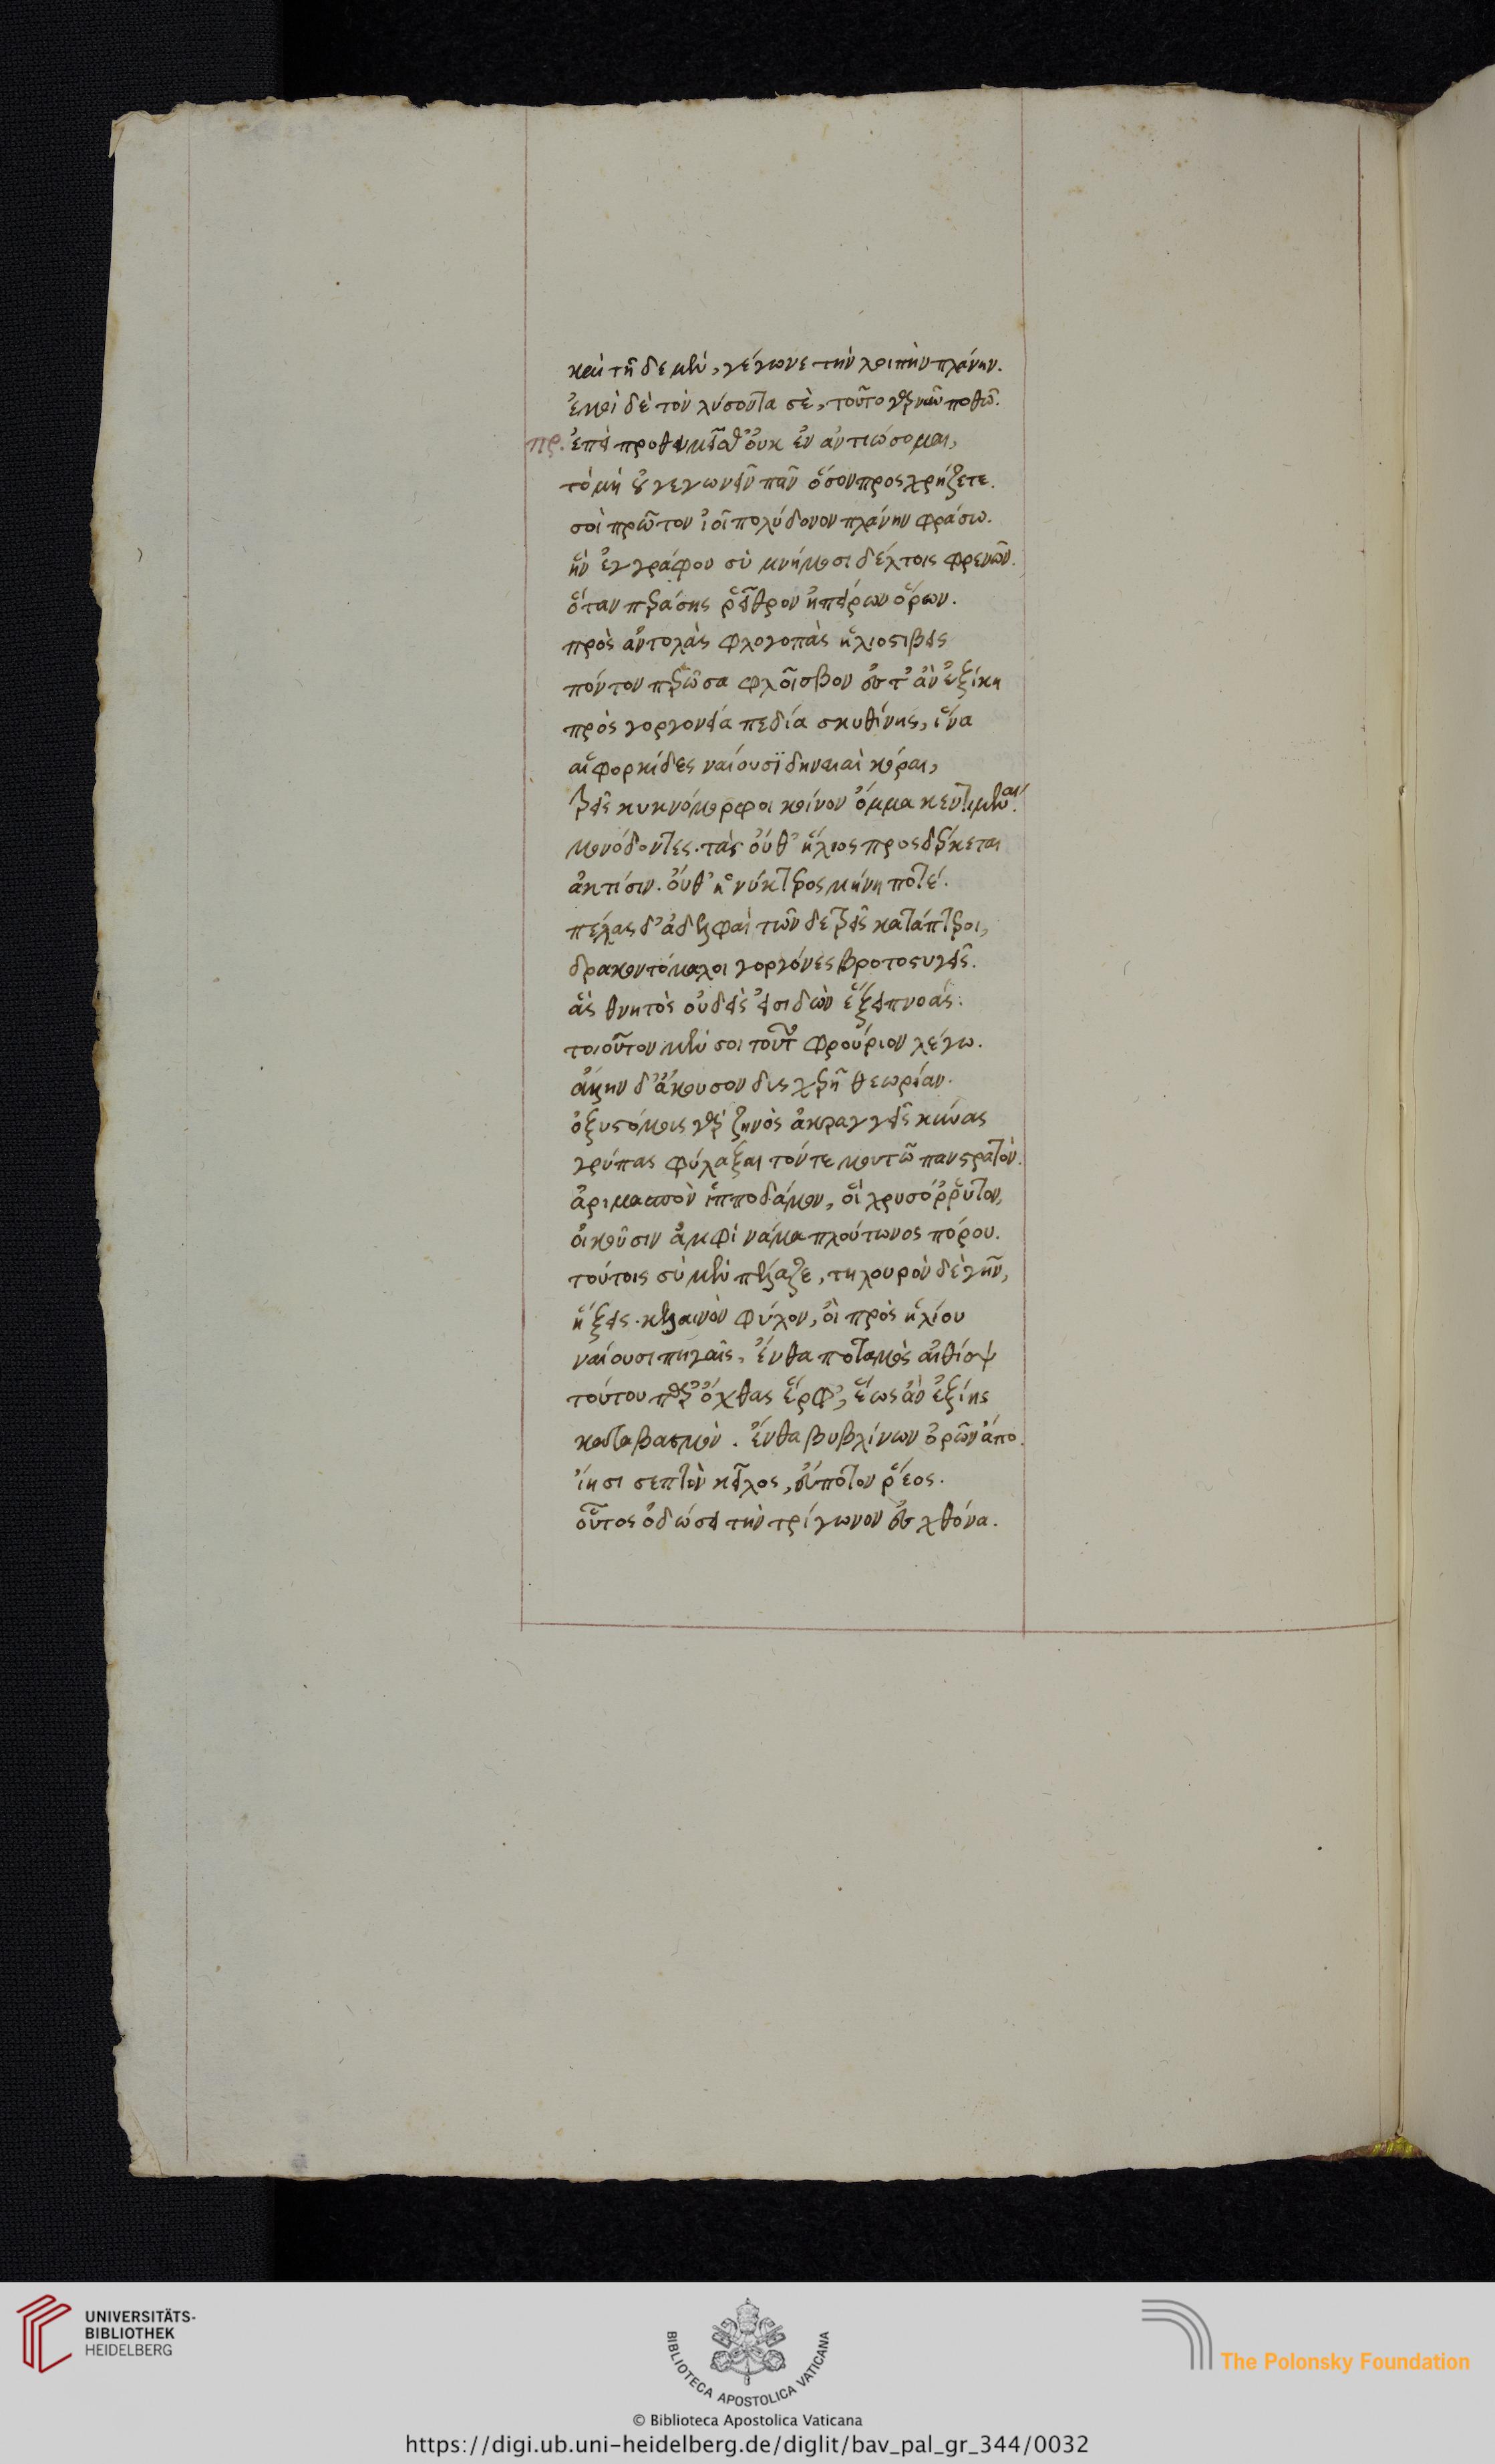 καὶ τῆδε μὲν, γέγωνε τὴν λοιπὴν πλάνην.
ἐμοὶ δὲ τὸν λύσοντα σὲ, τοῦτο γὰρ ποθῶ.
πρ. ἐπεὶ προθυμεῖσθ' οὐκ ἐναντιώσομαι,
τὸ μὴ οὐ γεγωνεῖν πᾶν ὅσον προσχρήζετε.
σοὶ πρῶτον ἰοῖ πολύδονον πλάνην φράσω.
ἣν ἐγγράφου σὺ μνήμοσι δέλτοις φρενῶν.
ὅταν περάσης ῥεῖθρον ἠπείρων ὅρων.
πρὸς ἀντολὰς φλογοπὰς ἡλιοστιβεῖς
πόντον περῶσα φλοῖσβον ἔς τ' ἂν ἐξίκη
πρὸς γοργονεία πεδία σκυθίνης, ἵνα
αἱ φορκίδες ναίουσϊ δηναιαὶ κόραι,
τρεῖς κυκνόμορφοι κοίνον ὄμμα κεντημέναι.
μονόδοντες. τὰς οὔθ' ἥλιος προσδέρκεται
ἀκτίσιν. οὔθ' ἡ νύκτερος μήνη ποτέ.
πέλας δ' ἀδελφαὶ τῶνδε τρεῖς κατάπτεροι,
δρακοντόμαλοι γοργόνες βροτοστυγεῖς.
ἃς θνητὸς οὐδεὶς εἰσιδὼν ἕξει πνοάς.
τοιοῦτον μέν σοι τοῦτο φρούριον λέγω.
ἄλλην δ' ἄκουσον δυσχερῆ θεωρίαν.
ὀξυστόμους γὰρ ζηνὸς ἀκραγγεῖς κύνας
γρύπας φύλαξαι τόντε μουνῶπα στρατὸν.
ἀριμασπὸν ἱπποβάμον, οἳ χρυσόρρυτον,
οἰκοῦσιν ἀμφὶ νάμα πλούτωνος πόρου.
τούτοις σὺ μὲν πέλαζε, τηλουρὸν δὲ γῆν,
ἥξεις. κελαινὸν φύλον, οἳ πρὸς ἡλίου
ναίουσι πηγαῖς, ἔνθα ποταμὸς αἰθίοψ
τούτου παρ' ὄχθας ἕρφ', ἕως ἂν ἐξίκης
καταβασμὸν. ἔνθα βυβλίνων ὀρῶν ἄπο.
ἵησι σεπτὸν νεῖλος, εὔποτον ῥέος.
οὗτος ὁδώσει τὴν τρίγωνον ἐς χθόνα.
UNIVERSITÄTS-
BIBLIOTHEK
HEIDELBERG
BIBLIOTECA APOSTOLICA VATICANA
The Polonsky Foundation
© Biblioteca Apostolica Vaticana
https://digi.ub.uni-heidelberg.de/diglit/bav_pal_gr_344/0032